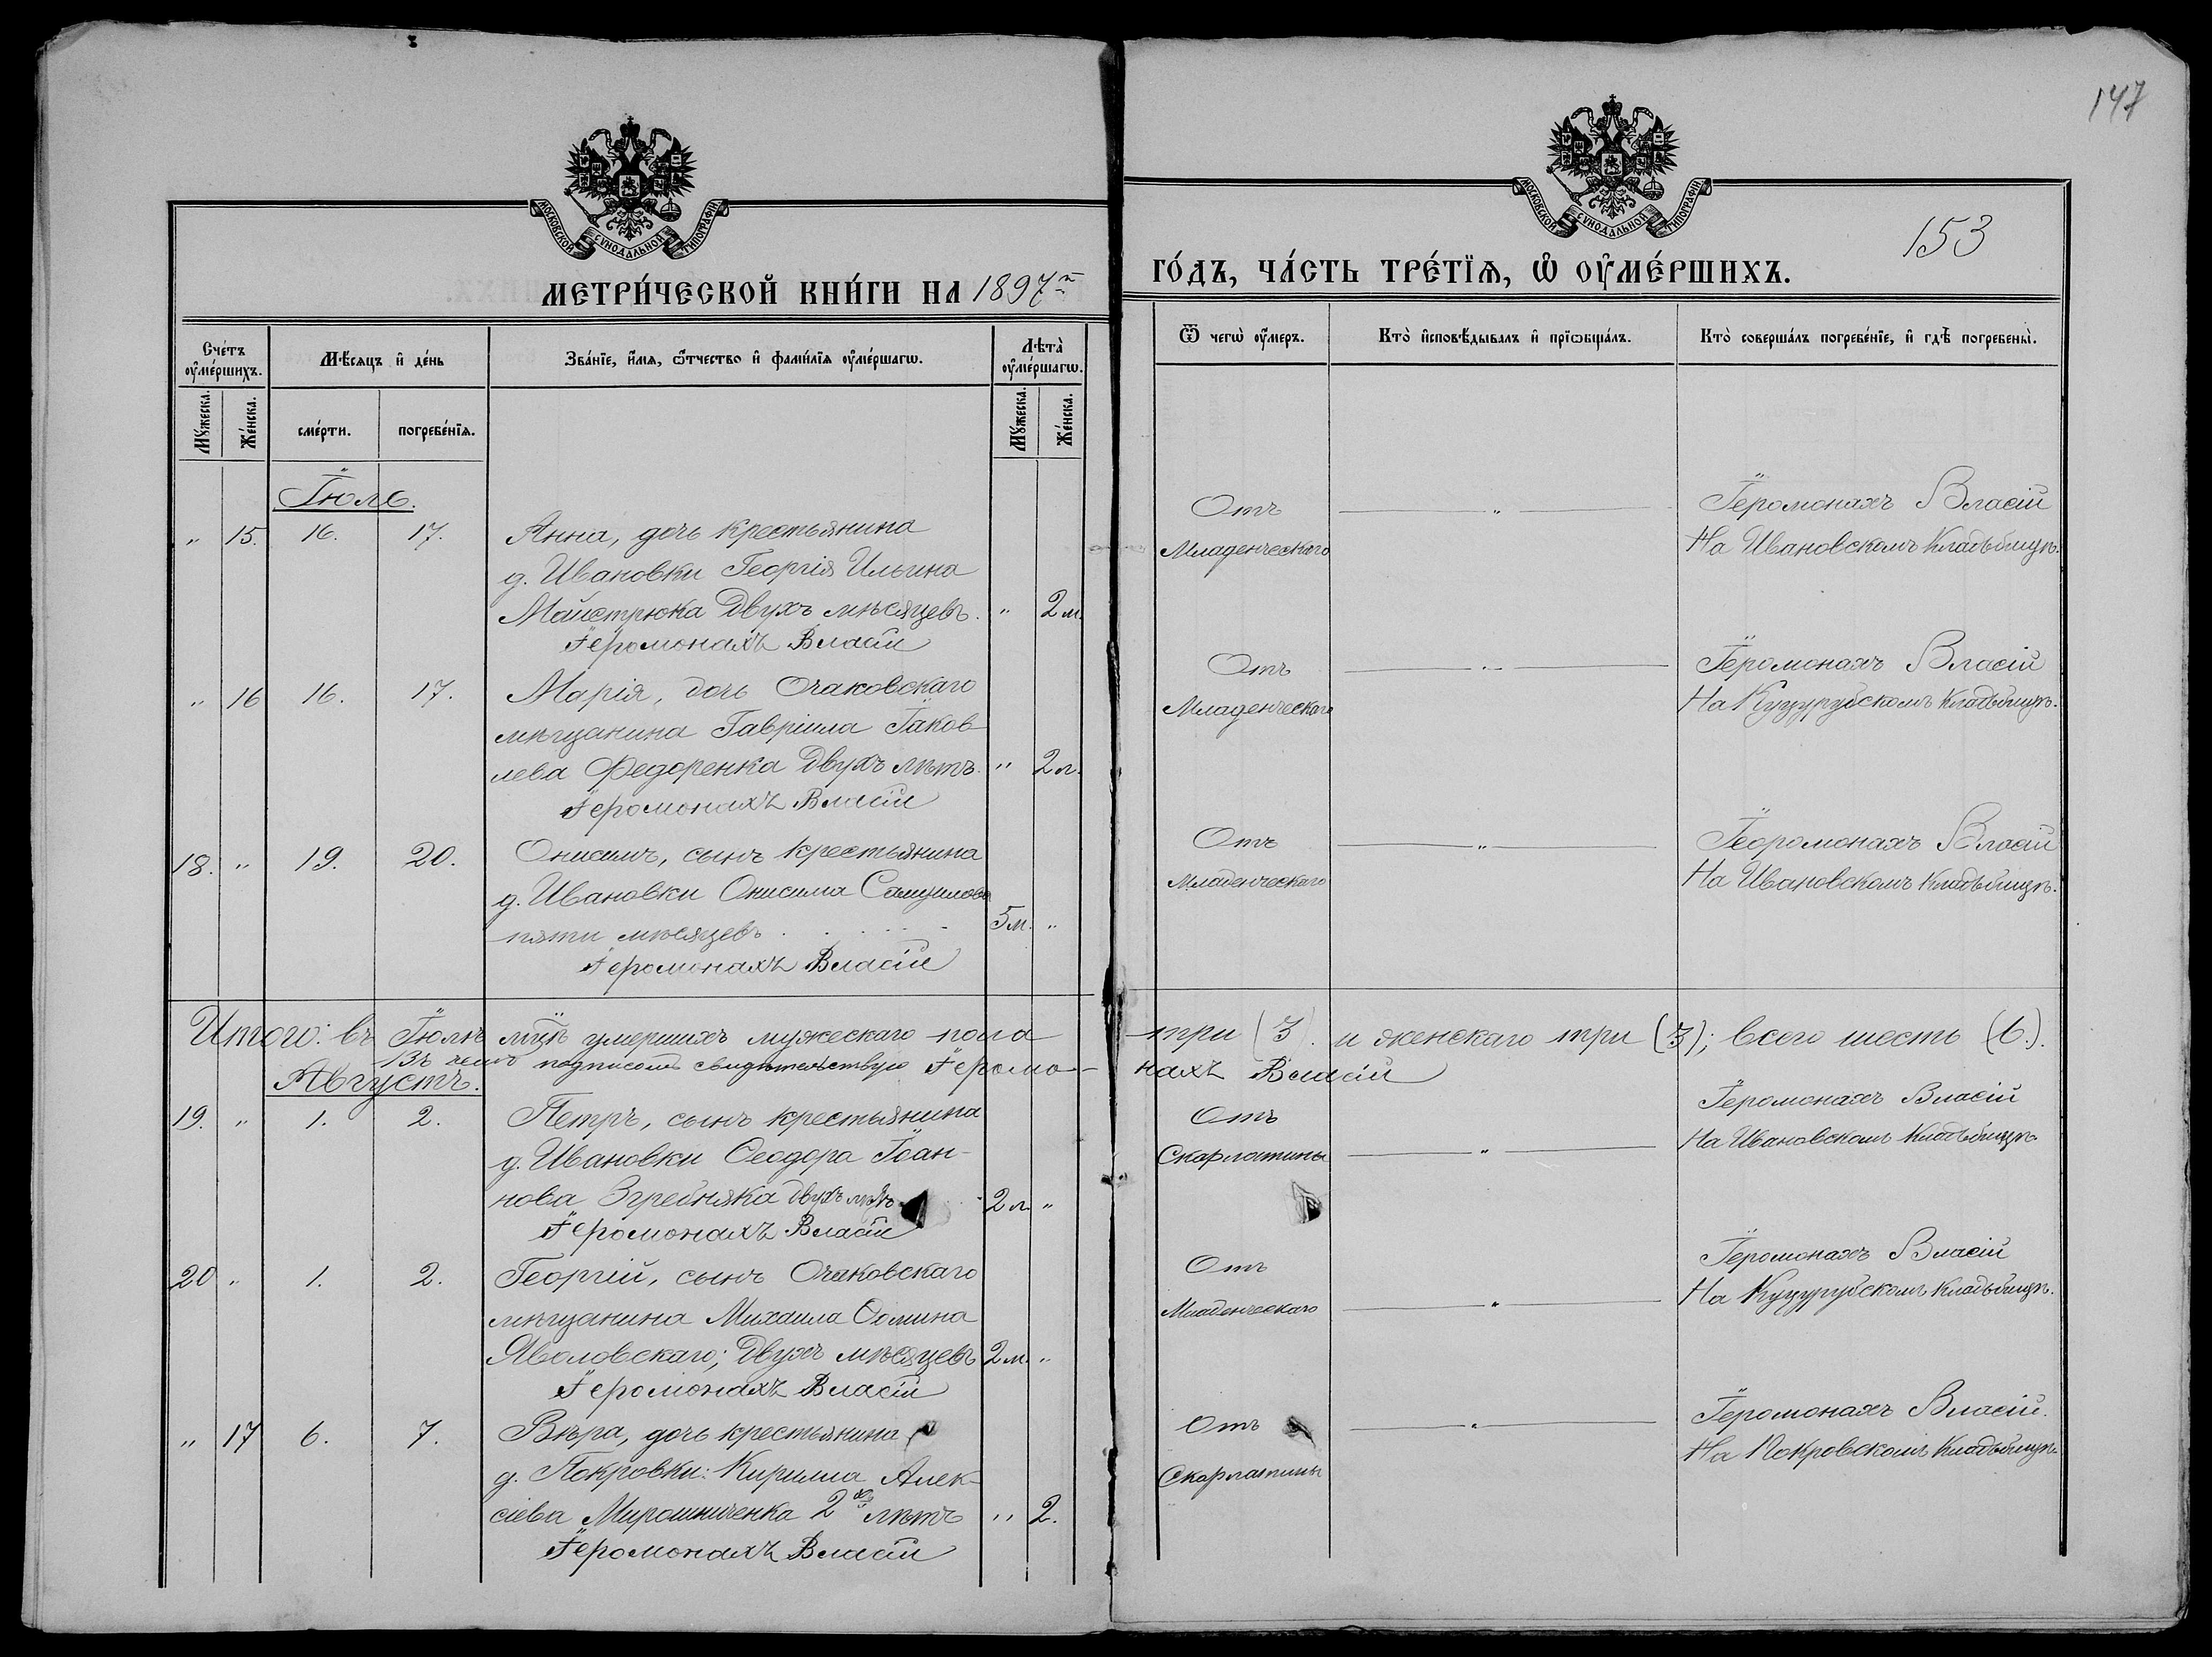 147
153
МОСКОВСКОЙ СѴНОДАЛЬНОЙ ТИПОГРАФІИ
МОСКОВСКОЙ СѴНОДАЛЬНОЙ ТИПОГРАФІИ
МЕТРИ́ЧЕСКОЙ КНИ́ГИ НА 1897й
ГО́ДЪ, ЧА́СТЬ ТРЕ́ТЇѦ, Ѡ҆ ОУ҆МЕ́РШИХЪ.
Сче́тъ оу҆ме́ршихъ.
Мѣ́сяцъ и҆ де́нь
Зва́нїе, и҆́мѧ, ѻ҆́тчество и҆ фами́лїѧ оу҆ме́ршагѡ.
Лѣта̀ оу҆ме́ршагѡ.
Ѿ чегѡ̀ оу҆́меръ.
Кто̀ и҆сповѣ́дывалъ и҆ прїѡбща́лъ.
Кто̀ соверша́лъ погребе́нїе, и҆ гдѣ̀ погребены̀.
Мꙋ́жеска. Же́нска.
сме́рти. погребе́нїѧ.
Мꙋ́жеска. Же́нска.
Іюль.
" 15. 16. 17. Анна, дочь крестьянина
д. Ивановки Георгія Ильина
Майстрюка двухъ мѣсяцевъ. " 2 м.
Іеромонахъ Власій
Отъ Младенческаго
"
Іеромонахъ Власій
На Ивановскомъ кладбищѣ.
" 16 16. 17. Марія, дочь Очаковскаго
мѣщанина Гавріила Іаков-
лева Федоренка двухъ лѣтъ. " 2 л.
Іеромонахъ Власій
Отъ Младенческаго
Іеромонахъ Власій
На Куцурубскомъ кладбищѣ.
18. " 19. 20. Онисимъ, сынъ крестьянина
д. Ивановки Онисима
пяти мѣсяцевъ 5 м. "
Іеромонахъ Власій
Отъ Младенческаго
"
Іеоромонахъ Власій
На Ивановскомъ кладбищѣ.
Итого: въ Іюлѣ мцѣ умершихъ мужескаго пола три (3). и женскаго три (3); всего шесть (6.).
Въ чемъ подписомъ свидѣтельствую Іеромо-нахъ Власій
Августъ.
19. " 1. 2. Петръ, сынъ крестьянина
д. Ивановки Ѳеодора Іоан-
нова Згребняка двухъ лѣтъ 2 л "
Іеромонахъ Власій
Отъ Скарлатины
"
Іеромонахъ Власій
На Ивановскомъ кладбищѣ
20 " 1. 2. Георгій, сынъ Очаковскаго
мѣщанина Михаила Ѳомина
Яволовскаго; двухъ мѣсяцевъ 2 м. "
Іеромонахъ Власій
Отъ Младенческаго
"
Іеромонахъ Власій
На Куцурубскомъ кладбищѣ.
" 17 6. 7. Вѣра, дочь крестьянина
д. Покровки: Кирилла Алек-
сіева Мирошниченка 2хъ лѣтъ " 2.
Іеромонахъ Власій
Отъ Скарлатины
"
Іеромонахъ Власій.
На Покровскомъ кладбищѣ.